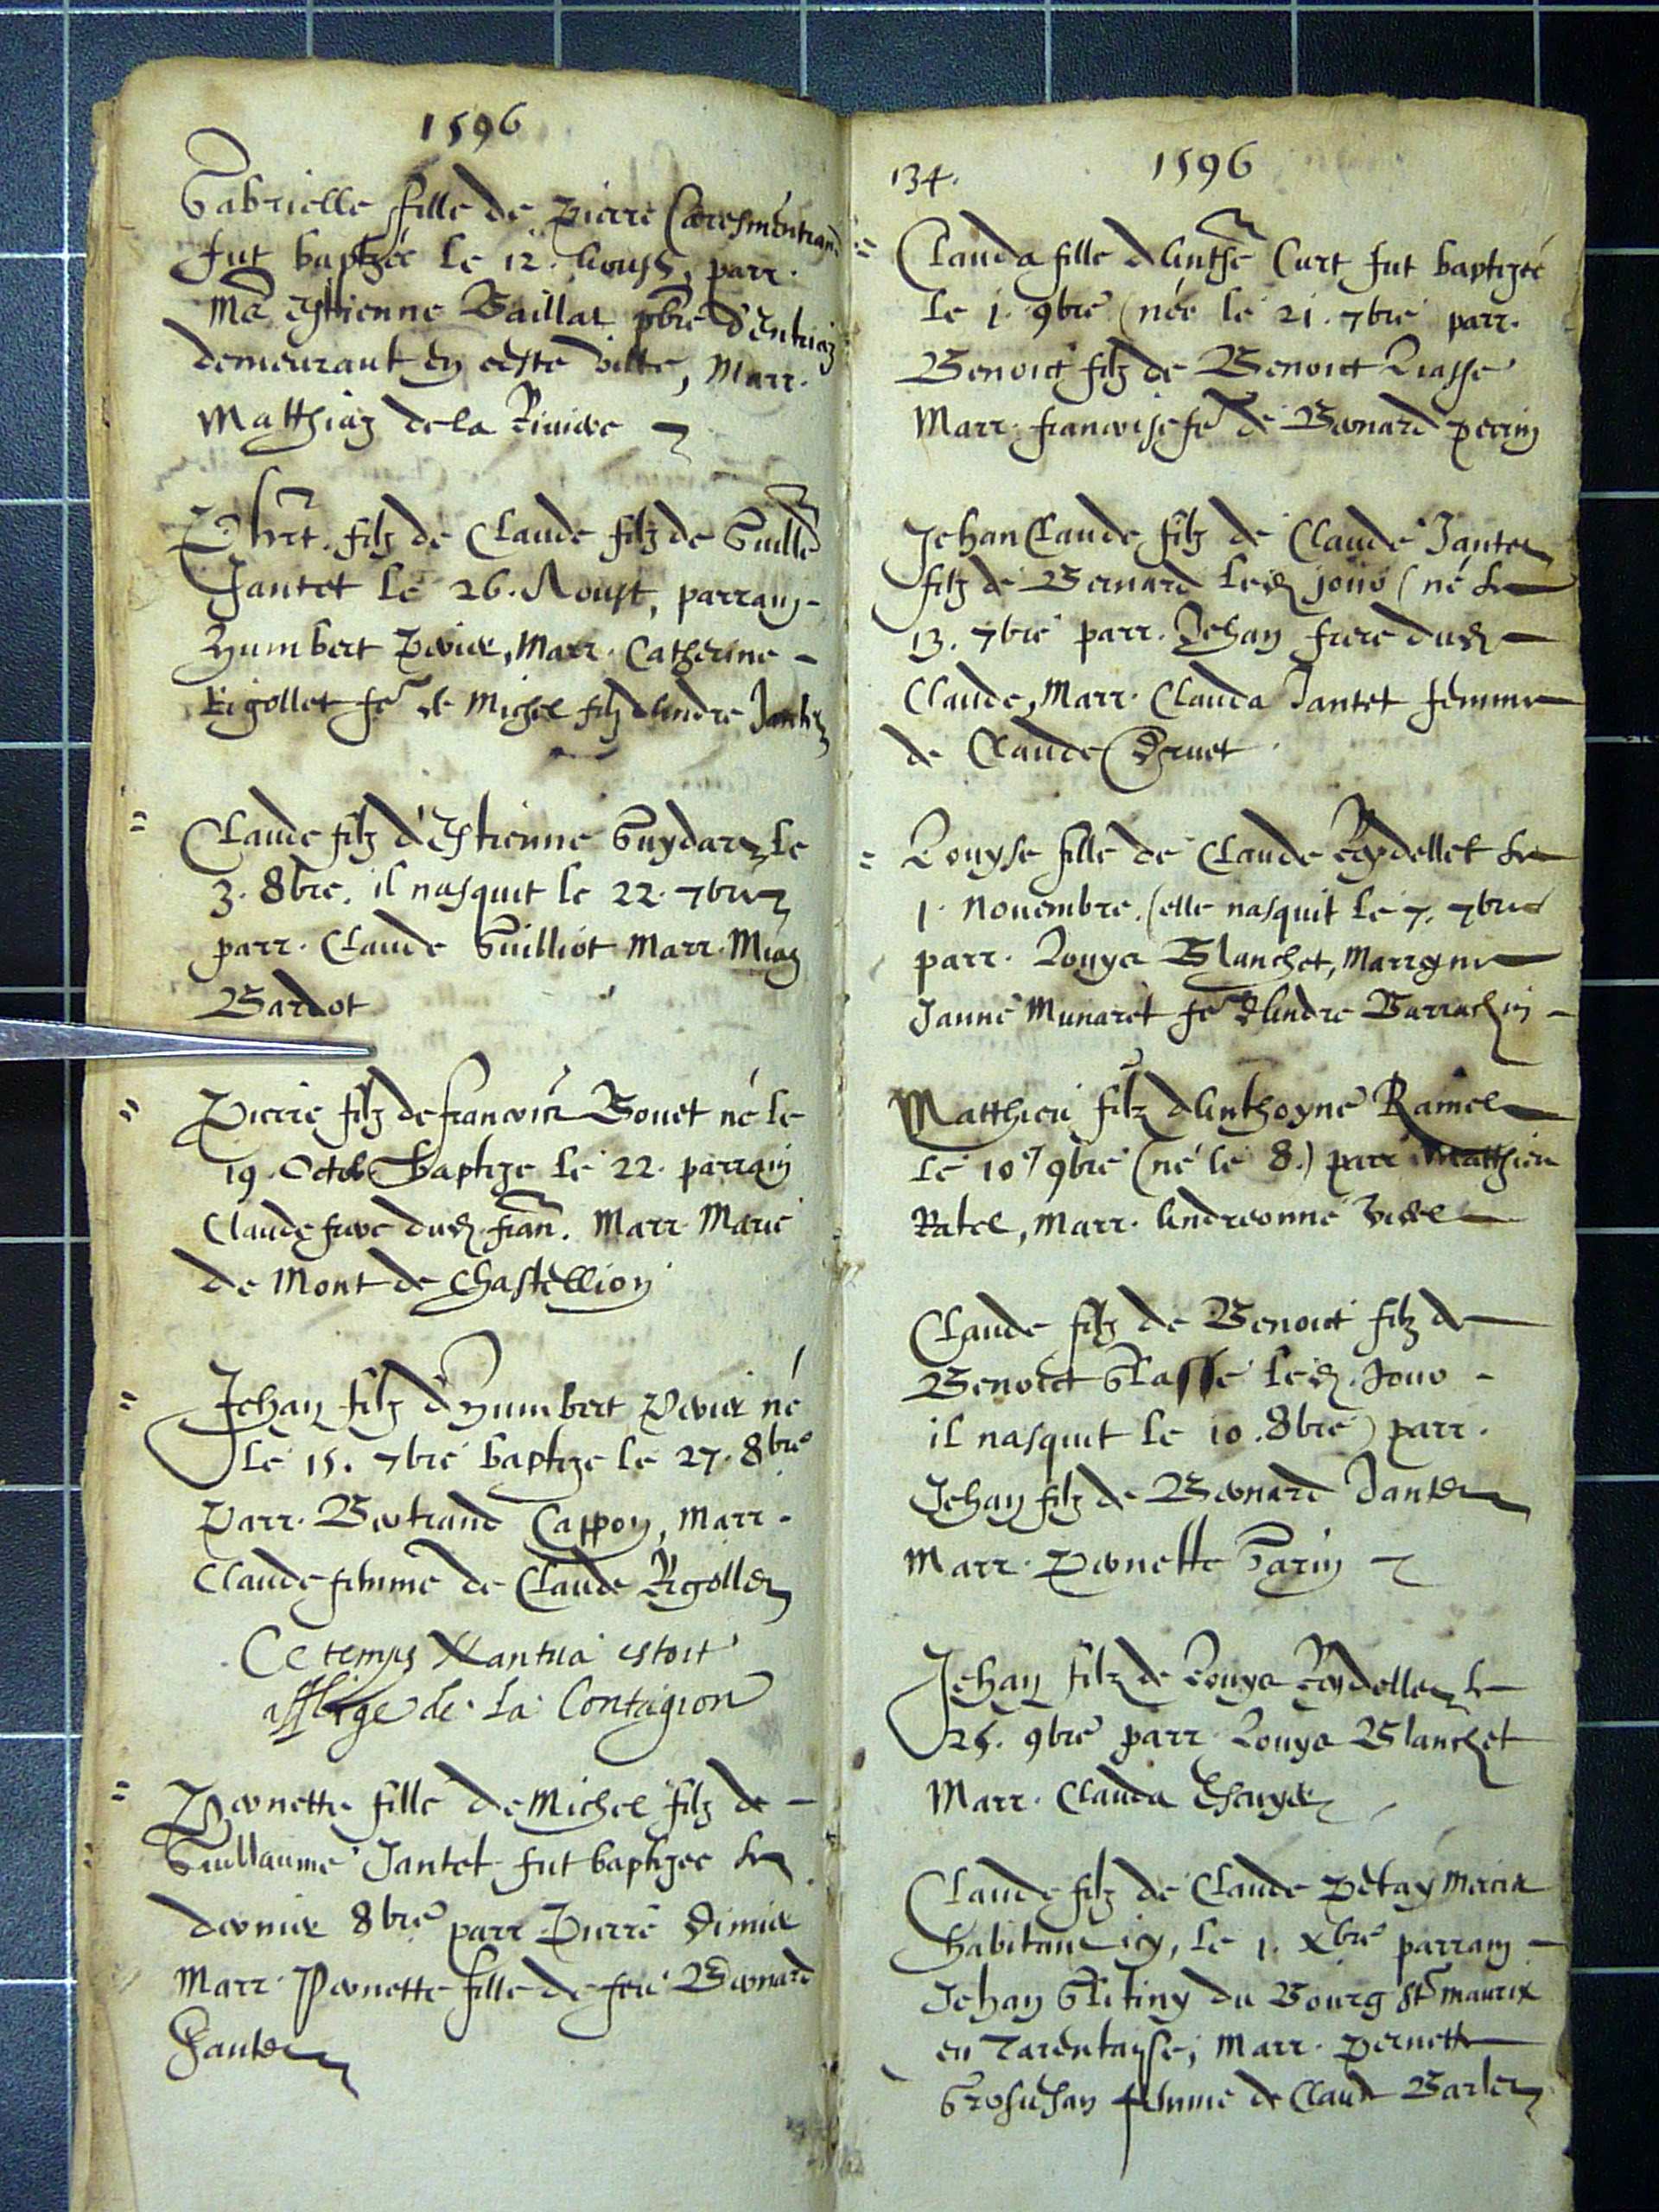 1596
Gabrielle fille de Pierre Caresmentrand
fut baptizée le 12. Aoust, parr.
Mre Estienne Baillat pbre d'Entriaz
demeurant en ceste ville, Marr.
Matthiaz de la Riviere
filz de Claude filz de Guille
Jantet le 26. Aoust, parrain
Humbert Perier, Marr. Catherine
Rigollet fe de Michel filz d'Andre Jantet
Claude filz d'Estienne Guydard le
3. 8bre. il nasquit le 22. 7bre
parr. Claude Guilliot Marr. Miaz
Bardot
Pierre filz de francois Bouet né le
19. Octob baptize le 22. parrain
Claude frere dud. fran. Marr Marie
de Mont de Chastellion
Jehan filz d'Humbert Perier né
le 15. 7bre baptize le 27. 8bre
Parr. Bertrand Cappon, Marr.
Claude femme de Claude Rigollet
Ce temps Nantua estoit
afflige de la Contagion
Pernette fille de Michel filz de
Guillaume Jantet fut baptizee le
dernier 8bre parr. Pierre
Marr. Pernette fille de feu Bernard
Jantet
134. 1596
Clauda fille d'Anthe Curt fut baptizée
le 1. 9bre (née le 21. 7bre parr.
Benoict filz de Benoict
Marr. francoise fe de Bernard perrin
Jehan Claude filz de Claude Jantet
filz de Bernard led. jour (né le
13. 7bre parr. Jehan frere dud.
Claude, Marr. Clauda Jantet femme
de Claude
Louyse fille de Claude Reydellet le
1. Novembre. (elle nasquit le 7. 7bre
parr. Louys Blanchet, Marryne
Janne Munaret fe d'Andre Barrachin
Matthieu filz d'Anthoyne Ramel
le 10e 9bre (né le 8.) parr Matthieu
Ratel, Marr. Andreonne
Claude filz de Benoict filz de
Benoict led. Jour
il nasquit le 10. 8bre) parr.
Jehan filz de Bernard Jantet
Marr. Pernette Garin
Jehan filz de Louys Reydellet le
25. 9bre parr. Louys Blanchet
Marr. Clauda
Claude filz de Claude Petay Mercier
habitant icy, le 1. Xbre parrain
Jehan du Bourg St Maurix
en Tarentayse, Marr. Pernette
femme de Claude Barlet